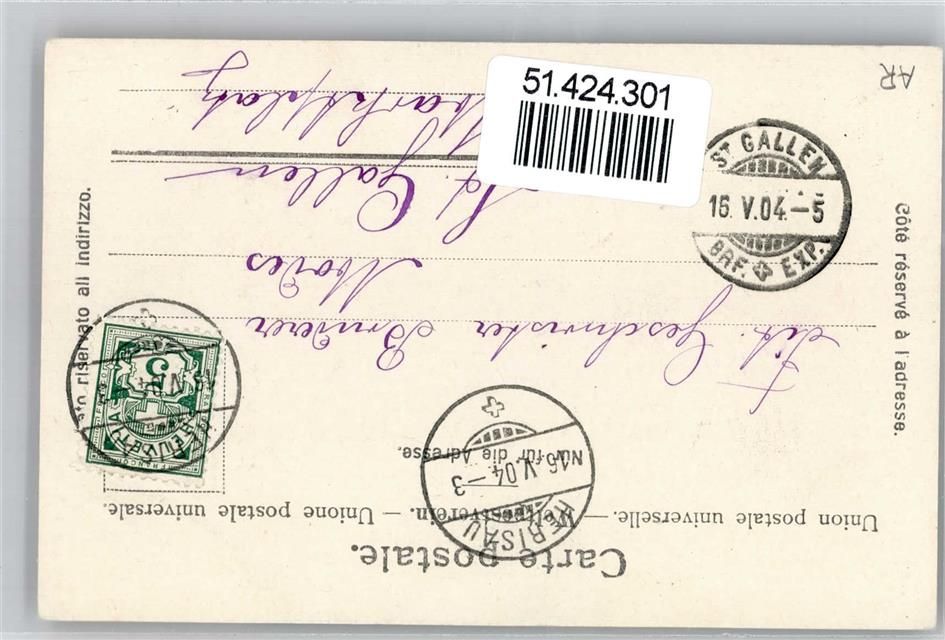 Carte postale.
Union postale universelle. — Weltpostverein. — Unione postale universale.
Nur für die Adresse.
Côté réservé à l'adresse.
ato riservato all indirizzo.
HERISAU
16. V. 04. – 3
HELVETIA
5
FRANCO
Tit. Geschwister Brunderer
Modes
St. Gallen
Marktplatz
ST GALLEN
16. V. 04. – 5
BRF. EXP.
51.424.301
AR